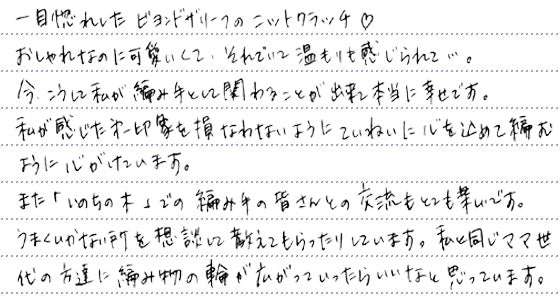 一目惚れしたビヨンドザリーフのニットクラッチ♡
おしゃれなのに可愛いくて、それでいて温もりも感じられて…。
今、こうして私が編み手として関わることが出来て本当に幸せです。
私が感じた第一印象を損なわないようにていねいに心を込めて編む
ように心がけています。
また「いのちの木」での編み手の皆さんとの交流もとても楽しいです。
うまくいかない所を相談して教えてもらったりしています。私と同じママ世
代の方達に編み物の輪が広がっていったらいいなと思っています。